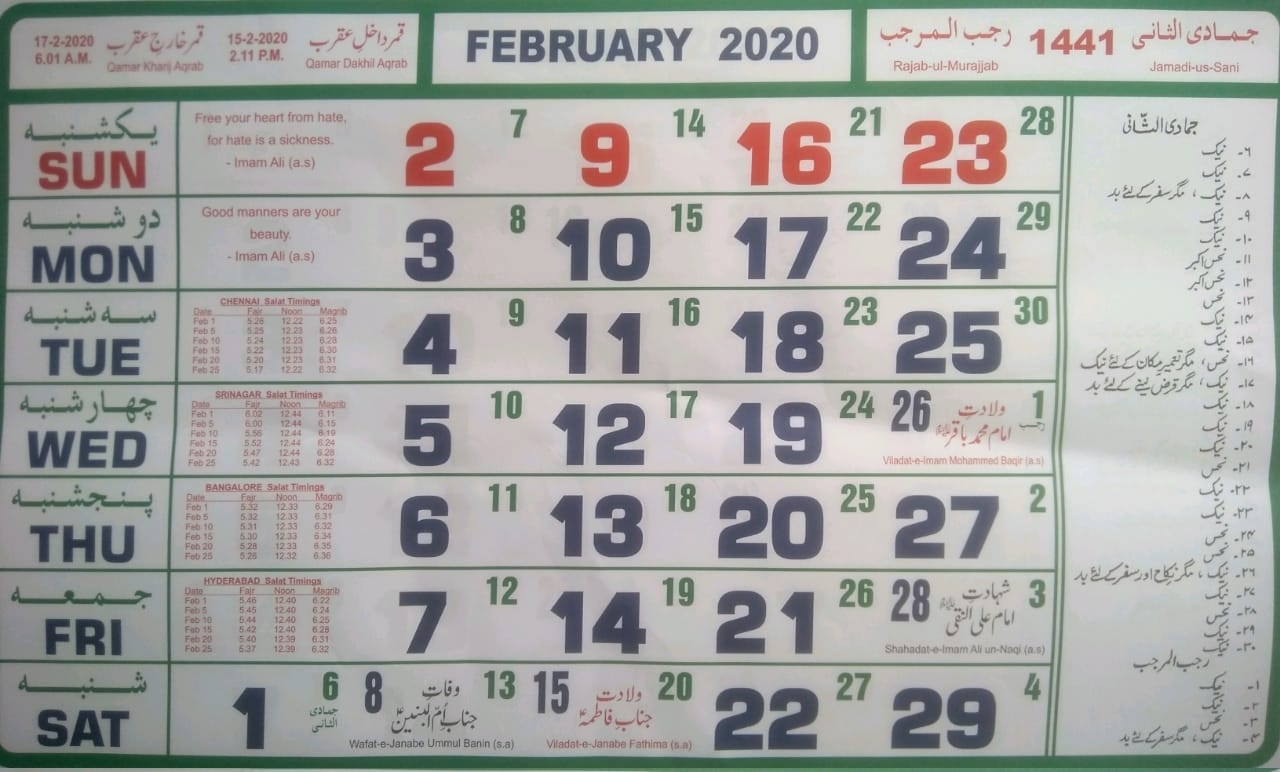 17-2-2020 قمر خارج عقرب 15-2-2020 قمر داخل عقرب
6.01 A.M. Qamar Kharij Aqrab 2.11 P.M. Qamar Dakhil Aqrab
FEBRUARY 2020
رجب المرجب 1441 جمادی الثانی
Rajab-ul-Murajjab Jamadi-us-Sani
یکشنبہ
SUN
Free your heart from hate,
for hate is a sickness.
- Imam Ali (a.s)
2 7 9 14 16 21 23 28
دو شنبہ
MON
Good manners are your
beauty.
- Imam Ali (a.s)
3 8 10 15 17 22 24 29
سہ شنبہ
TUE
CHENNAI Salat Timings
Date Fajr Noon Magrib
Feb 1 5.26 12.22 6.25
Feb 5 5.25 12.23 6.26
Feb 10 5.24 12.23 6.28
Feb 15 5.22 12.23 6.30
Feb 20 5.20 12.23 6.31
Feb 25 5.17 12.22 6.32
4 9 11 16 18 23 25 30
چهار شنبہ
WED
SRINAGAR Salat Timings
Date Fajr Noon Magrib
Feb 1 6.02 12.44 6.11
Feb 5 6.00 12.44 6.15
Feb 10 5.56 12.44 6.19
Feb 15 5.52 12.44 6.24
Feb 20 5.47 12.44 6.28
Feb 25 5.42 12.43 6.32
5 10 12 17 19 24 26 ولادت 1
امام محمد باقر رجب
Viladat-e-Imam Mohammed Baqir (a.s)
پنجشنبہ
THU
BANGALORE Salat Timings
Date Fajr Noon Magrib
Feb 1 5.32 12.33 6.29
Feb 5 5.32 12.33 6.31
Feb 10 5.31 12.33 6.32
Feb 15 5.30 12.33 6.34
Feb 20 5.28 12.33 6.35
Feb 25 5.26 12.32 6.36
6 11 13 18 20 25 27 2
جمعہ
FRI
HYDERABAD Salat Timings
Date Fajr Noon Magrib
Feb 1 5.46 12.40 6.22
Feb 5 5.45 12.40 6.24
Feb 10 5.44 12.40 6.25
Feb 15 5.42 12.40 6.28
Feb 20 5.40 12.39 6.31
Feb 25 5.37 12.39 6.32
7 12 14 19 21 26 28 شہادت 3
امام علی النقی
Shahadat-e-Imam Ali un-Naqi (a.s)
شنبہ
SAT
1 6 8 وفات 13 15 ولادت 20 22 27 29 4
جمادی الثانی جناب ام البنین جناب فاطمہ
Wafat-e-Janabe Ummul Banin (s.a) Viladat-e-Janabe Fathima (s.a)
جمادی الثانی
۶۔ نیک
۷۔ نیک
۸۔ نیک، مگر سفر کے لئے بد
۹۔ نیک
۱۰۔ نیک
۱۱۔ نحس اکبر
۱۲۔ نحس اکبر
۱۳۔ نحس
۱۴۔ نیک
۱۵۔ نیک
۱۶۔ نحس، مگر تعمیر مکان کے لئے نیک
۱۷۔ نیک، مگر قرض لینے کے لئے بد
۱۸۔ نیک
۱۹۔ نیک
۲۰۔ نیک
۲۱۔ نحس
۲۲۔ نیک
۲۳۔ نیک
۲۴۔ نحس
۲۵۔ نحس
۲۶۔ نیک، مگر نکاح اور سفر کے لئے بد
۲۷۔ نیک
۲۸۔ نحس
۲۹۔ نیک
۳۰۔ نیک
رجب المرجب
۱۔ نیک
۲۔ نیک
۳۔ نحس
۴۔ نیک، مگر سفر کے لئے بد